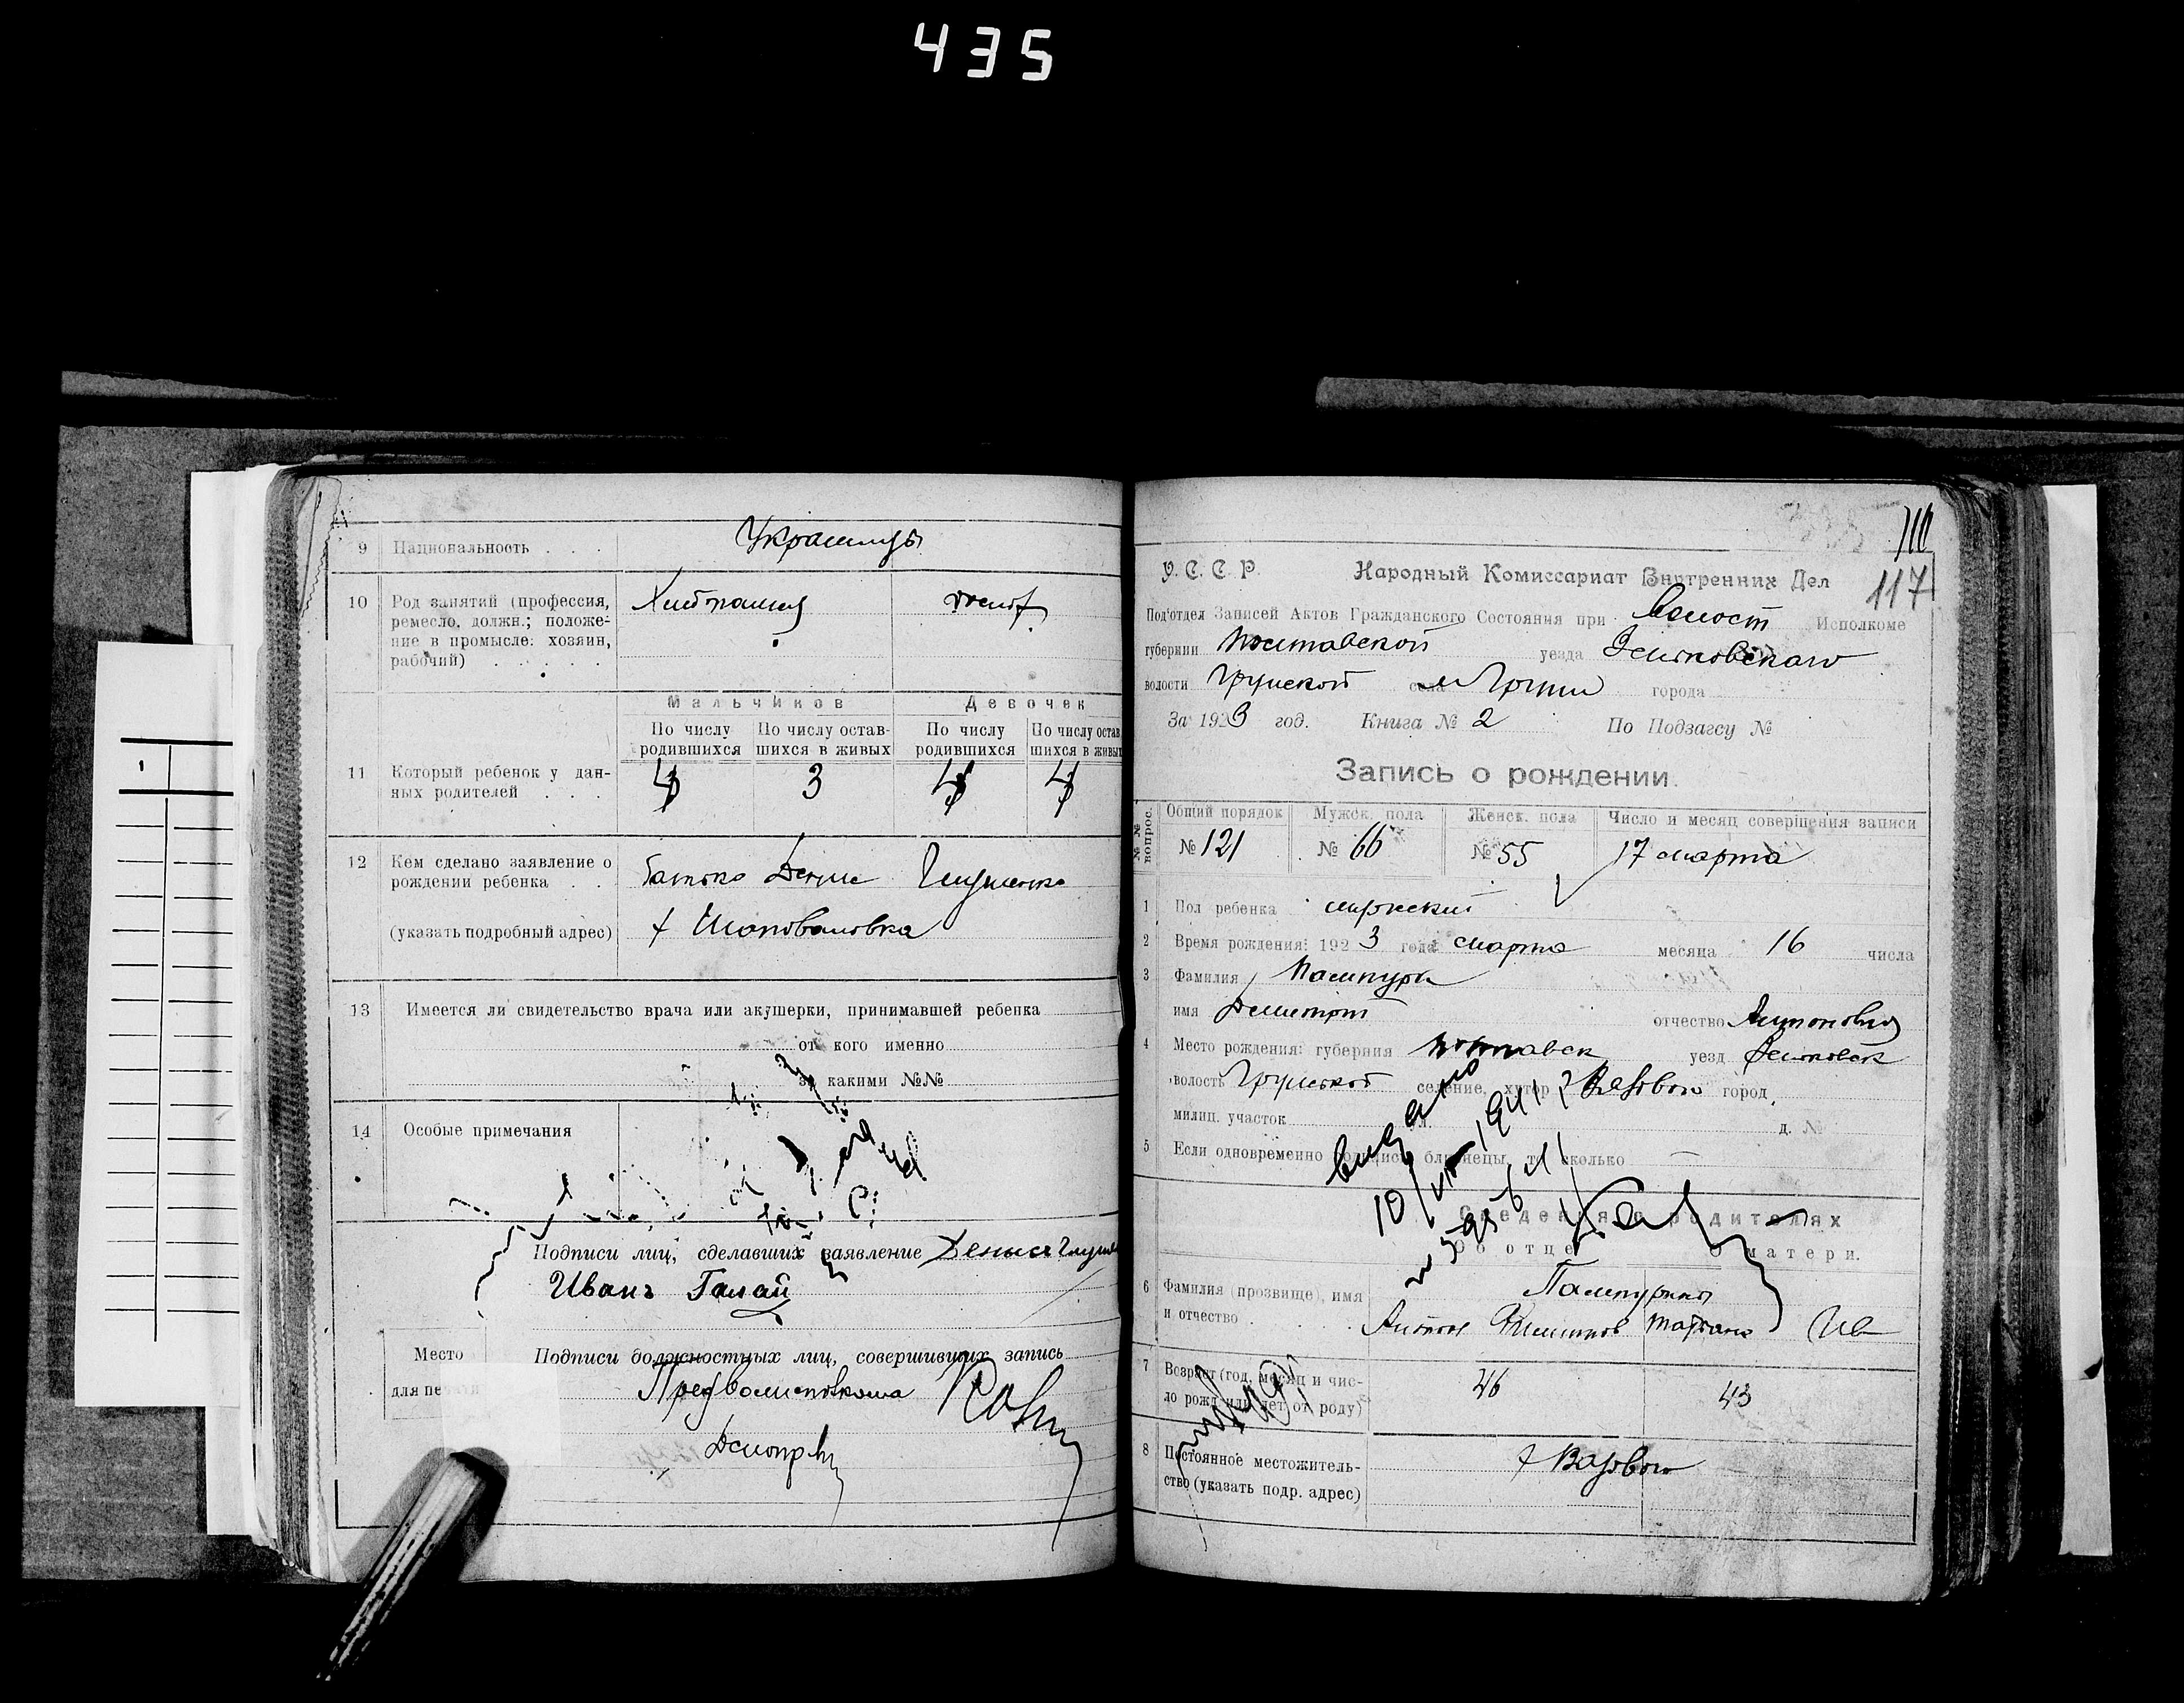 435
9 Национальность . . . Украинцы
10 Род занятий (профессия,
ремесло, должн.; положе-
ние в промысле: хозяин,
рабочий) . . . . .
Мальчиков Девочек
По числу родившихся По числу остав-шихся в живых По числу родившихся По число остав шихся в живых
11 Который ребенок у дан-
ных родителей . . . 4 3 4 4
12 Кем сделано заявление о
рождении ребенка . . Батько Денис
(указать подробный адрес) х Шаповаловка
13 Имеется ли свидетельство врача или акушерки, принимавшей ребенка
от кого именно
за какими №№
14 Особые примечания
Подписи лиц, сделавших заявление Денис
Иванъ Галай
Место
для печати
Подписи должностных лиц, совершивших запись
Предволисполкома
111
117
У. С. С. Р. Народный Комиссариат Внутренних Дел
Под'отдел Записей Актов Гражданского Состояния при Волост Исполкоме
губернии Полтавской уезда Зеньковскаго
волости Грунской села м Груни города
За 1923 год. Книга № 2 По Подзагсу №
Запись о рождении.
№№ вопрос. Общий порядок Мужск. пола Женск. пола Число и месяц совершения записи
№ 121 № 66 № 55 17 марта
1 Пол ребенка мужский
2 Время рождения: 1923 года марта месяца 16 числа
3 Фамилия Пампура
имя Димитрий отчество Антонович
4 Место рождения: губерния Полтавск уезд Зеньковск
волость Грунской селение, хутор город
милиц. участок ул. д. №
5 Если одновременно родились близнецы, то сколько —
видано
10/VII 1941
Сведения о родителях
Об отце О матери.
6 Фамилия (прозвище), имя
и отчество . . . Антон Филиппов Татьяна Ив
7 Возраст (год, месяц и чис-
ло рожд. или лет от роду) 46 43
8 Постоянное местожитель-
ство (указать подр. адрес)